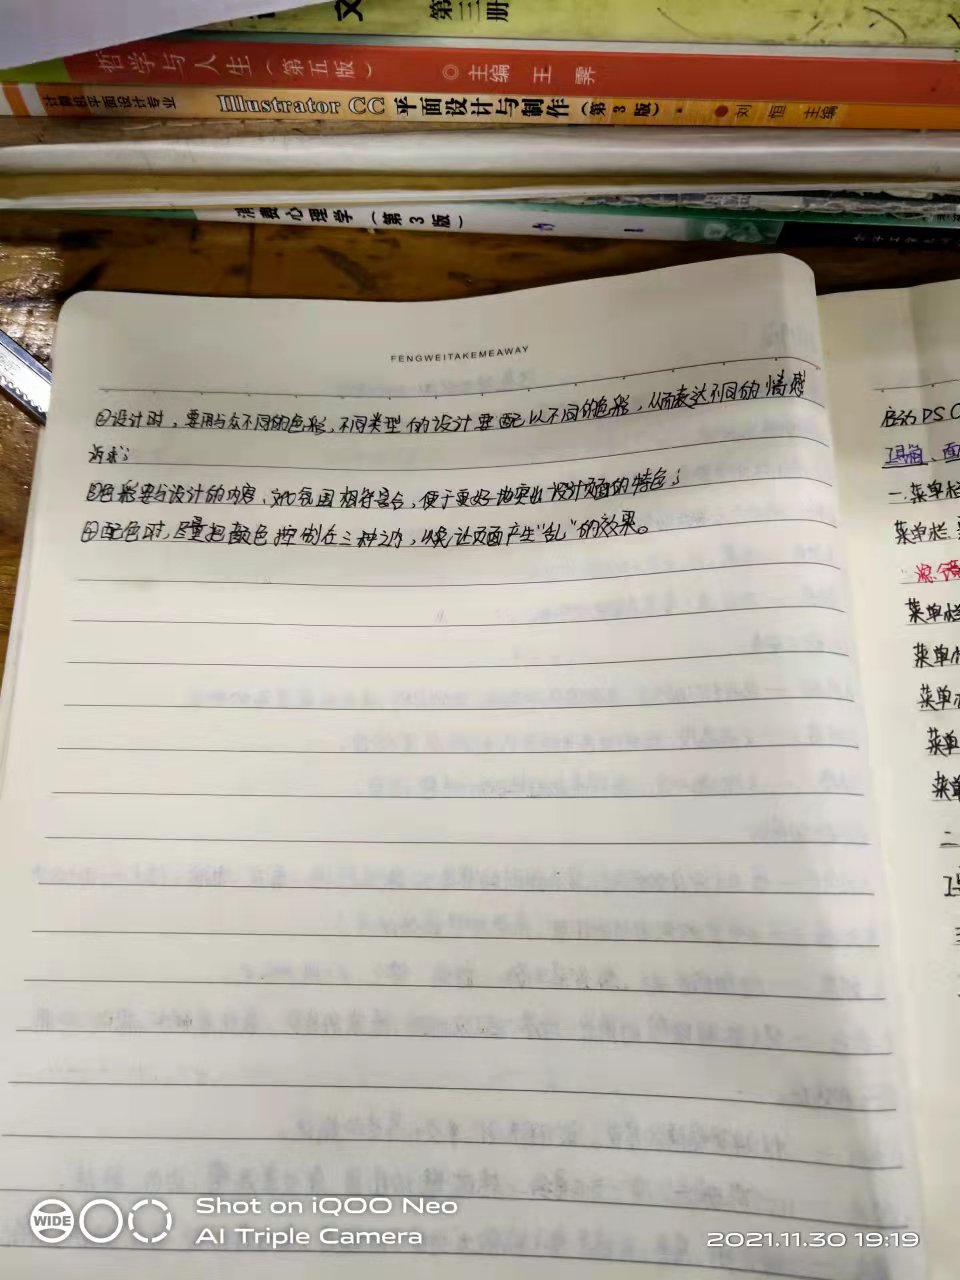 文 第三册
哲学与人生（第五版） ◎主编 王 霁
计算机平面设计专业 Illustrator CC 平面设计与制作（第3版） 刘 恒 主编
消费心理学（第3版）
FENGWEITAKEMEAWAY
设计时，要用与众不同的色彩，不同类型的设计要配以不同的色彩，从而表达不同的情感
诉求；
色彩要与设计的内容、氛围相符合，便于更好地突出设计页面的特色；
配色时，尽量把颜色控制在三种之内，以免让页面产生“乱”的效果。
启动PS
工具箱、面
一.菜单栏
菜单栏.
滤镜
菜单栏
菜单
菜单
菜单
菜单
二
工具
WIDE
Shot on iQOO Neo
AI Triple Camera
2021.11.30 19:19